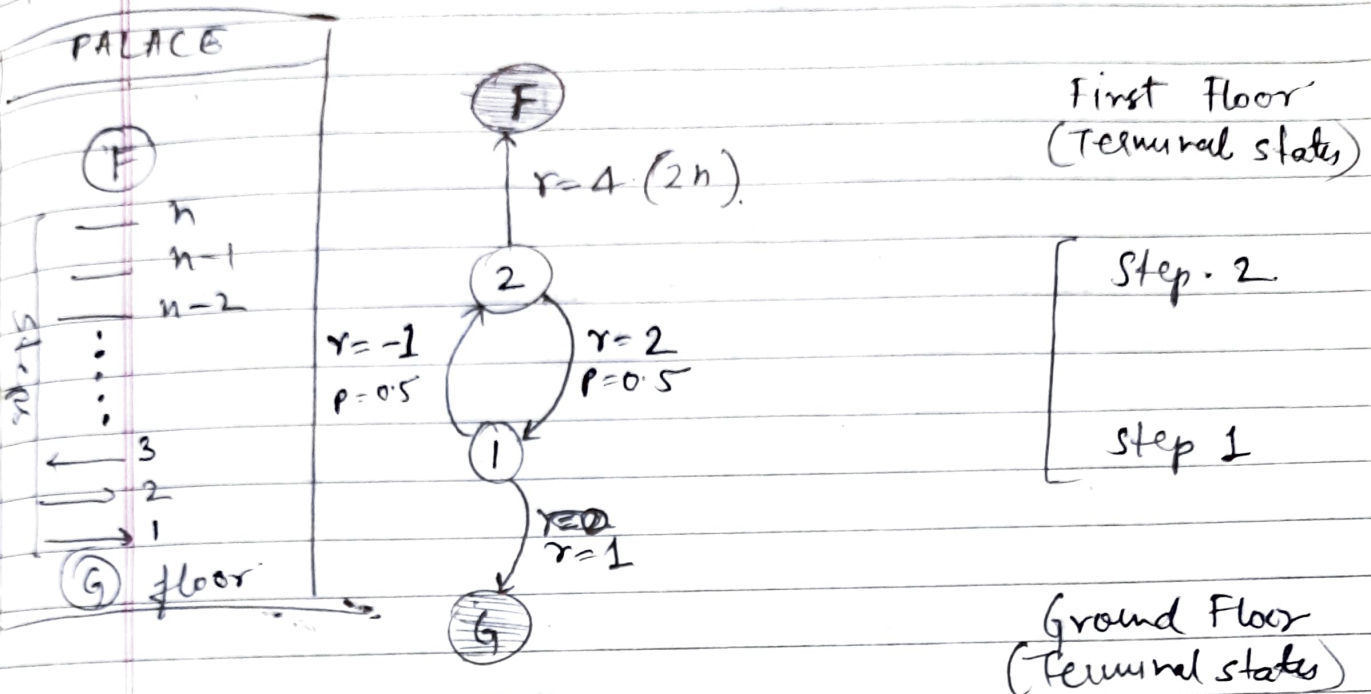 PALACE
F
n
n-1
n-2
3
2
1
G floor
F
r=4 (2n).
2
r=-1
p=0.5
r=2
p=0.5
1
r=1
G
First Floor
(Terminal states)
Step. 2
Step 1
Ground Floor
(Terminal states)